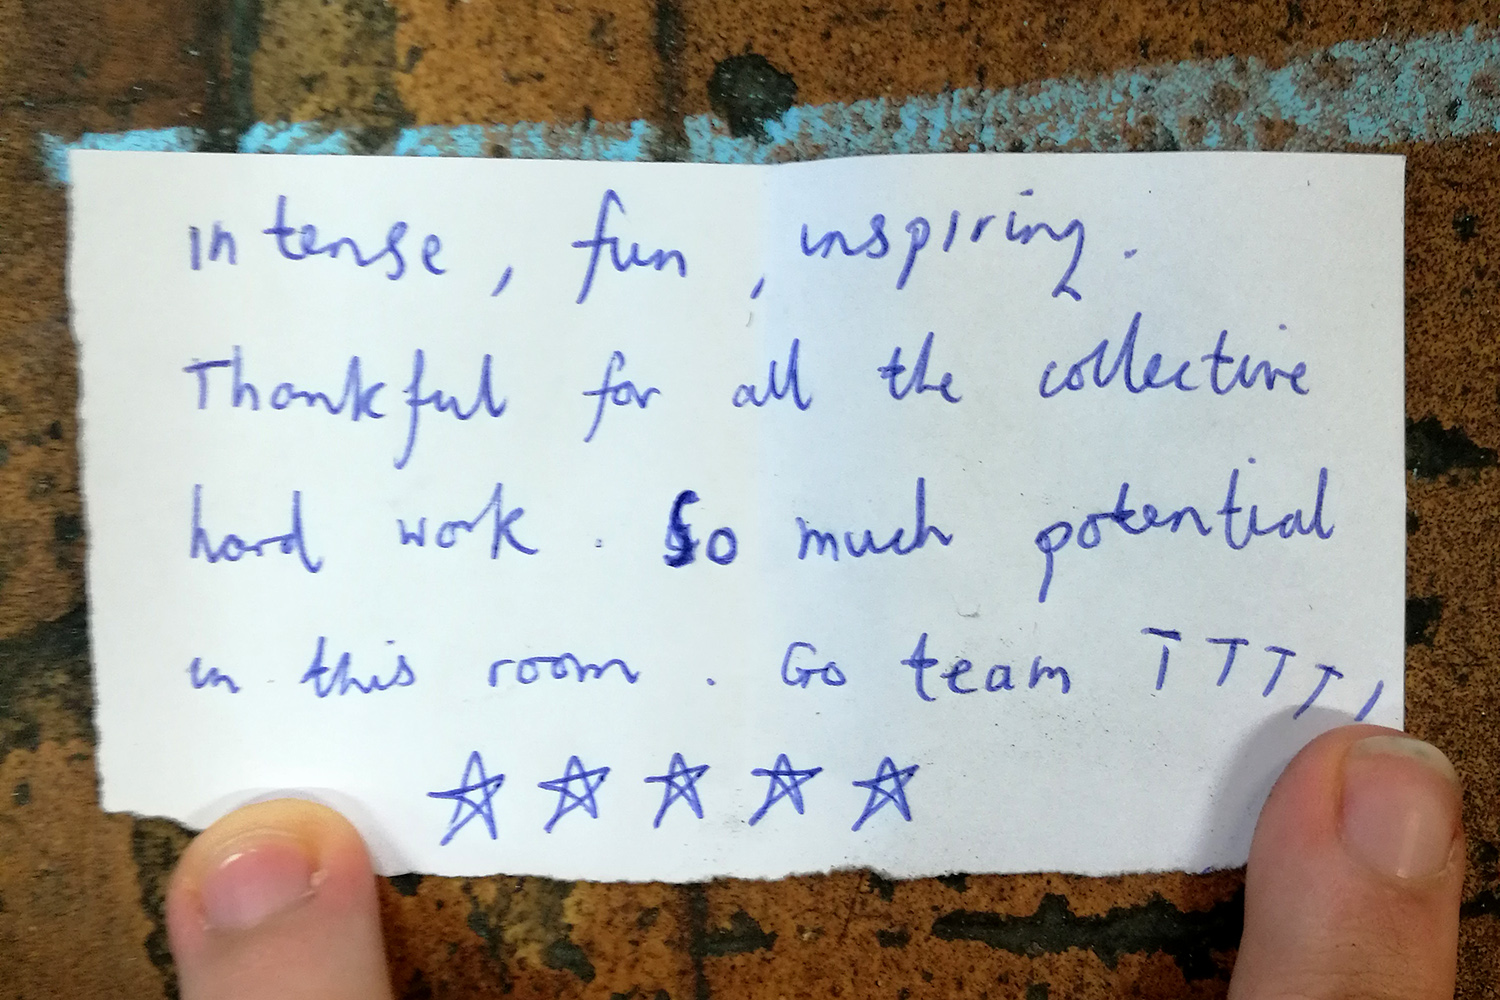 intense, fun, inspiring.
Thankful for all the collective
hard work. So much potential
in this room. Go team TTTT
☆☆☆☆☆